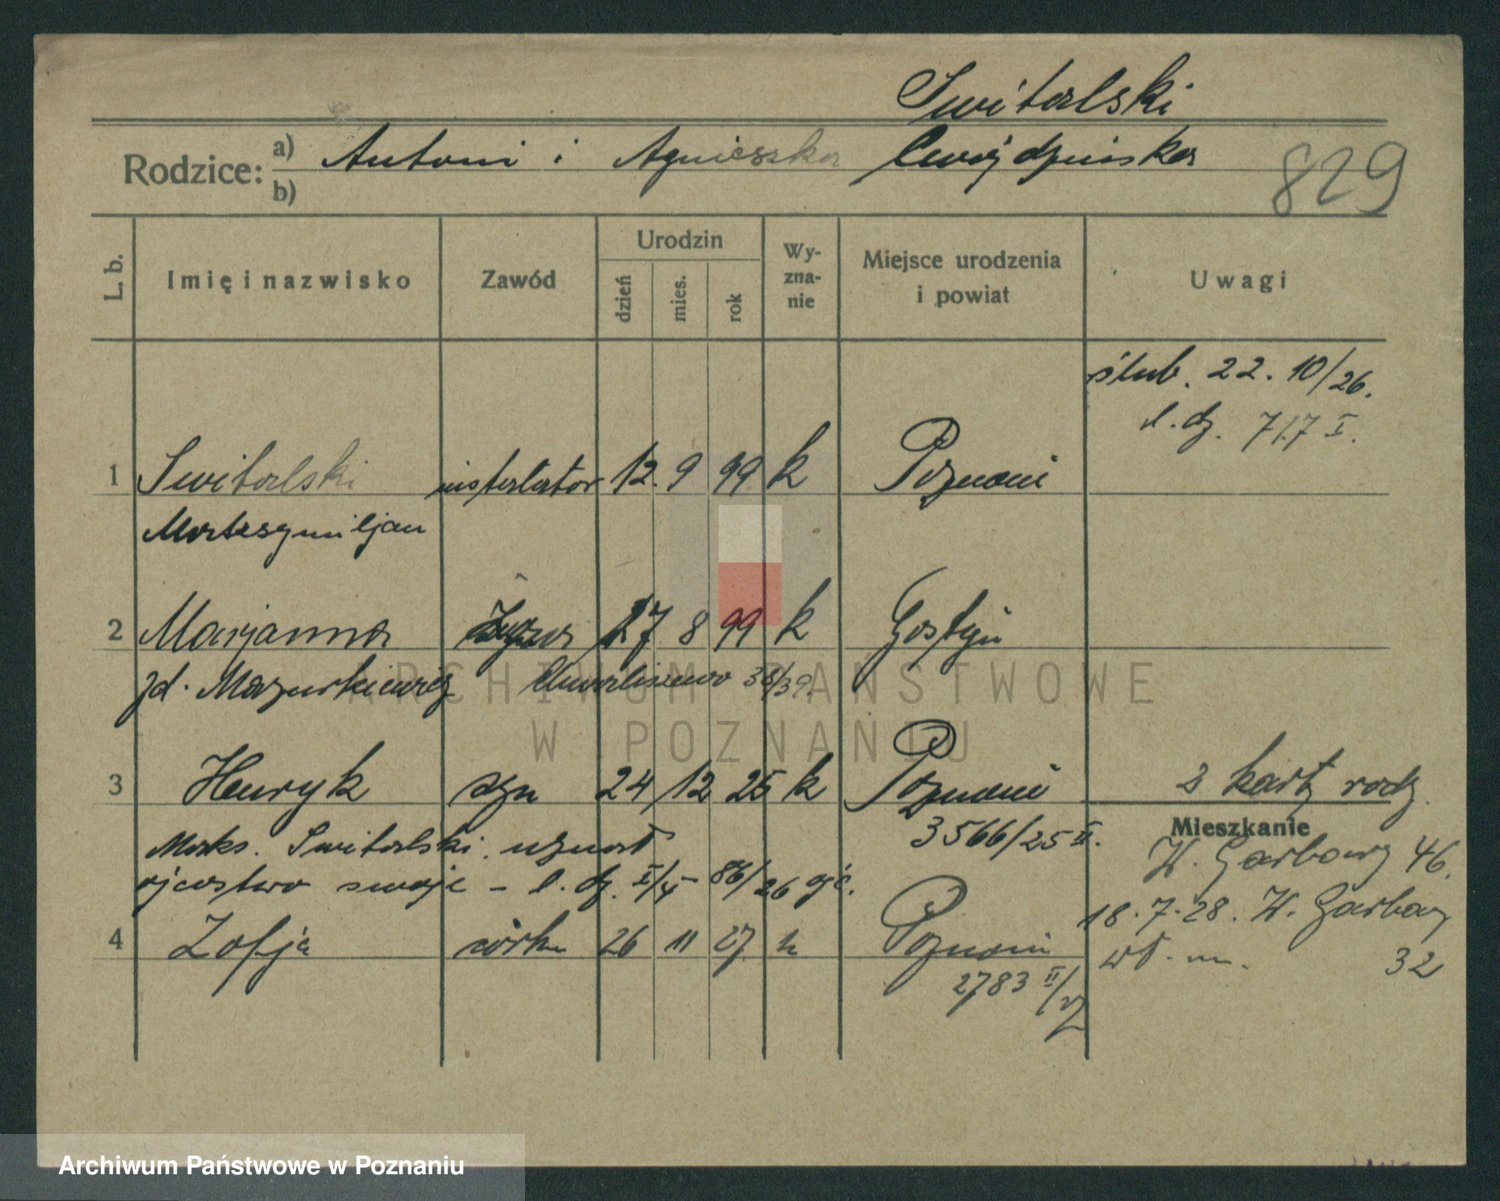 Switalski
Rodzice: a) Antoni i Agnieszka Cwojdzińska
b)
829
L. b.
Imię i nazwisko
Zawód
Urodzin
dzień
mies.
rok
Wy-
zna-
nie
Miejsce urodzenia
i powiat
Uwagi
ślub. 22. 10/26.
l. dz. 717 I.
1 Switalski instalator 12. 9 99 k Poznań
Maksymiljan
2 Marjanna żona 27 8 99 k Gostyń
zd. Mazurkiewicz Chwaliszewo 38/39.
ARCHIWUM PAŃSTWOWE
W POZNANIU
3 Henryk syn 24 12 25 k Poznań
3566/25 II.
z karty rodz.
Maks. Switalski uznał
ojcostwo swoje – l. dz. 86/26
Mieszkanie
W. Garbary 46.
18. 7. 28. W. Garbary
wł. m. 32
4 Zofja córka 26 11 27 k Poznań
2783 II/27
Archiwum Państwowe w Poznaniu